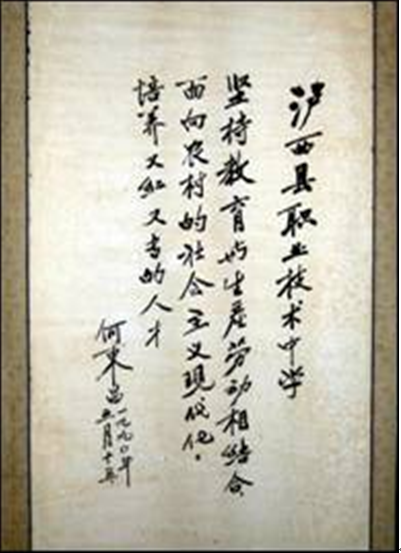 泸西县职业技术中学
坚持教育与生产劳动相结合
面向农村的社会主义现代化。
培养又红又专的人才
何东昌
一九九〇年
五月十日